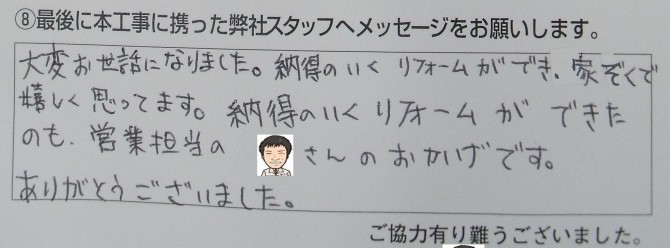 ⑧最後に本工事に携った弊社スタッフへメッセージをお願いします。
大変お世話になりました。納得のいくリフォームができ、家ぞくで
嬉しく思ってます。納得のいくリフォームができた
のも、営業担当の さんのおかげです。
ありがとうございました。
ご協力有り難うございました。